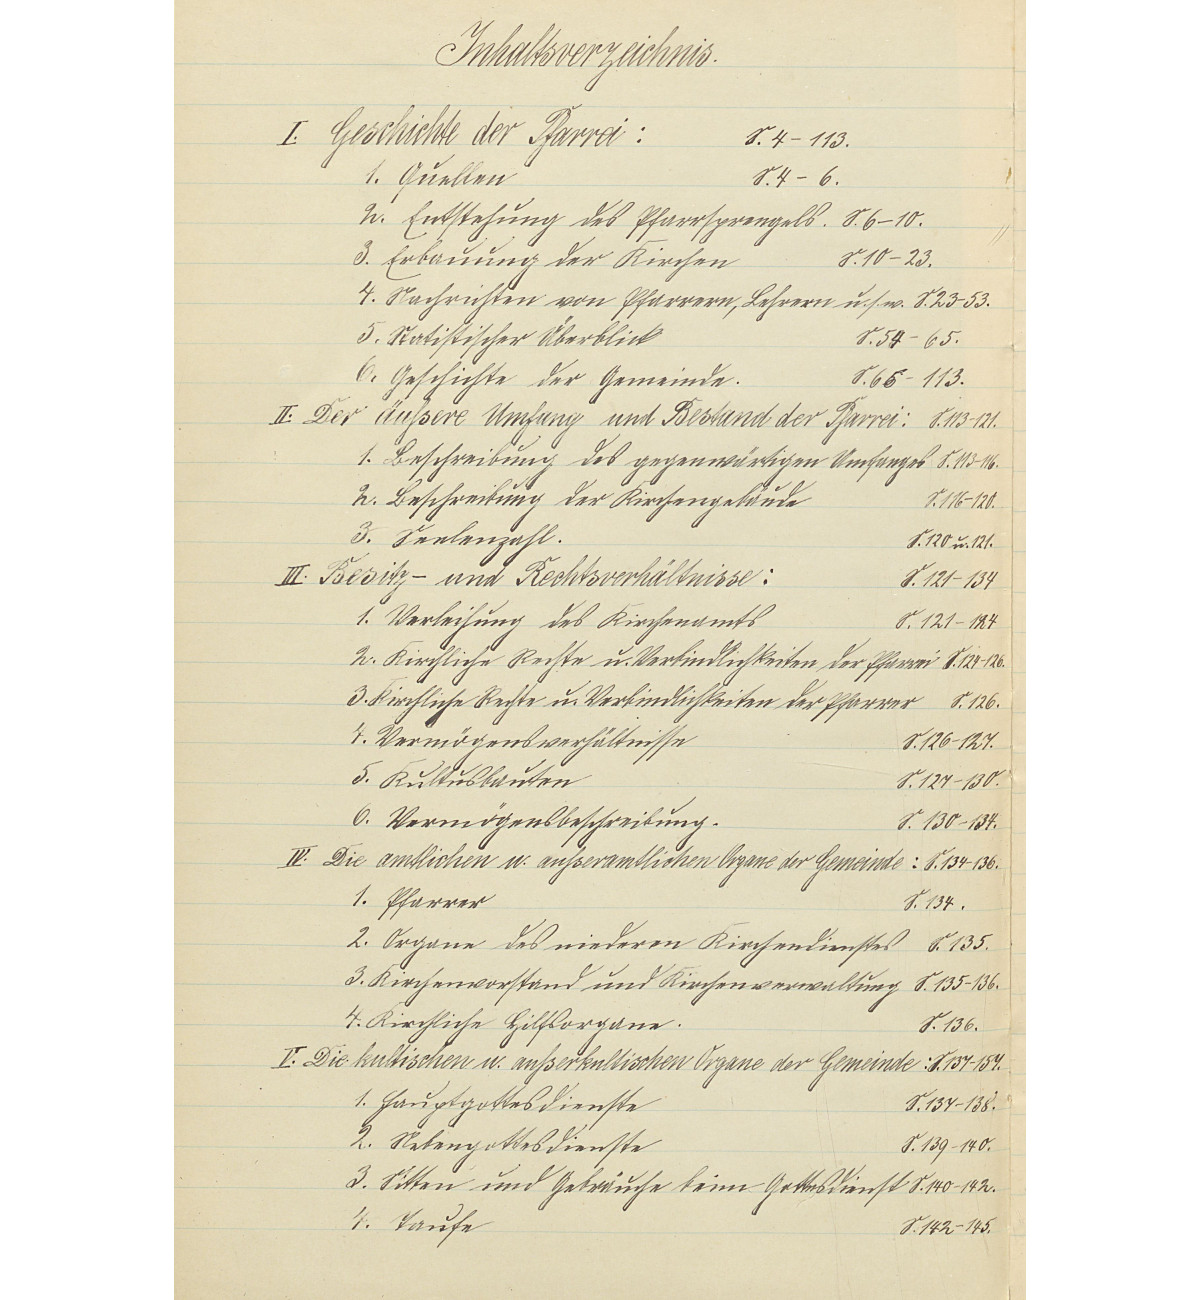 Inhaltsverzeichnis.
I. Geschichte der Pfarrei: S. 4 - 113.
1. Quellen S. 4 - 6.
2. Entstehung des Pfarrsprengels. S. 6-10.
3. Erbauung der Kirchen S. 10-23.
4. Nachrichten von Pfarrern, Lehrern u.s.w. S. 23-53.
5. Statistischer Überblick S. 54 - 65.
6. Geschichte der Gemeinde. S. 65 - 113.
II. Der äußere Umfang und Bestand der Pfarrei: S. 113-121.
1. Beschreibung des gegenwärtigen Umfanges S. 113-116.
2. Beschreibung der Kirchengebäude S. 116-120.
3. Seelenzahl. S. 120 u. 121.
III. Besitz- und Rechtsverhältnisse: S. 121-134
1. Verleihung des Kirchenamts S. 121-124
2. Kirchliche Rechte u. Verbindlichkeiten der Pfarrei S. 124-126.
3. Kirchliche Rechte u. Verbindlichkeiten der Pfarrer S. 126.
4. Vermögensverhältnisse S. 126-127.
5. Kultusbauten S. 127-130.
6. Vermögensbeschreibung. S. 130-134.
IV. Die amtlichen u. außeramtlichen Organe der Gemeinde: S. 134-136.
1. Pfarrer S. 134.
2. Organe des niederen Kirchendienstes S. 135.
3. Kirchenvorstand und Kirchenverwaltung S. 135-136.
4. Kirchliche Hilfsorgane. S. 136.
V. Die kultischen u. außerkultischen Organe der Gemeinde: S. 137-157.
1. Hauptgottesdienste S. 137-138.
2. Nebengottesdienste S. 139-140.
3. Sitten und Gebräuche beim Gottesdienst S. 140-142.
4. Taufe S. 142-145.